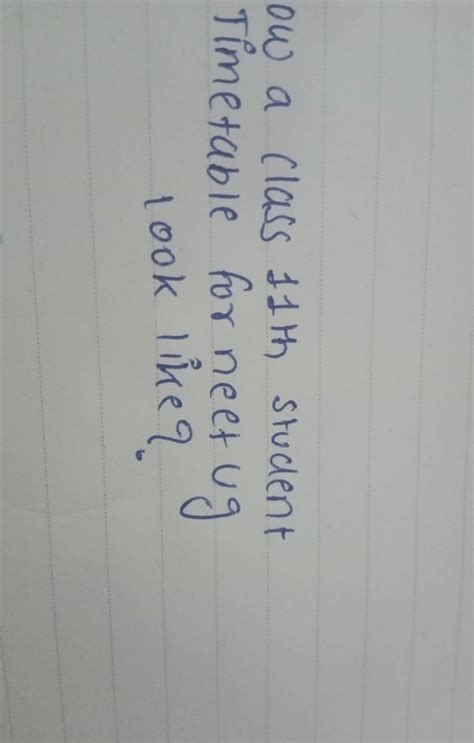 ow a class 11th student
Timetable for neet ug
look like?